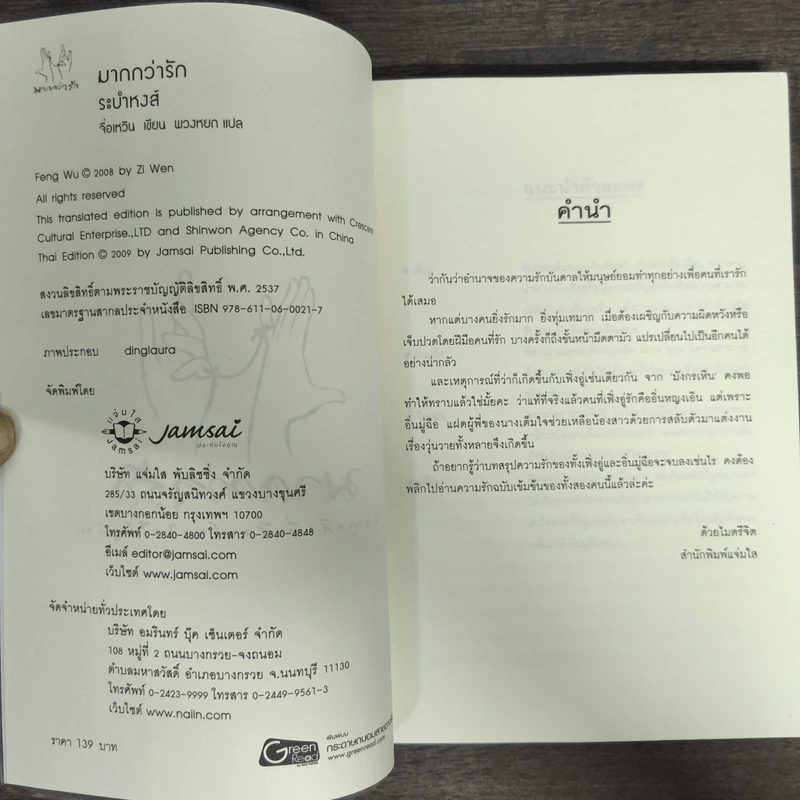 มากกว่ารัก
มากกว่ารัก
ระบำหงส์
จื่อเหวิน เขียน พวงหยก แปล
Feng Wu © 2008 by Zi Wen
All rights reserved
This translated edition is published by arrangement with Crescent
Cultural Enterprise.,LTD and Shinwon Agency Co. in China
Thai Edition © 2009 by Jamsai Publishing Co.,Ltd.
สงวนลิขสิทธิ์ตามพระราชบัญญัติลิขสิทธิ์ พ.ศ. 2537
เลขมาตรฐานสากลประจำหนังสือ ISBN 978-611-06-0021-7
ภาพประกอบ dinglaura
จัดพิมพ์โดย
แจ่มใส
Jamsai
Jamsai
ประทับใจคุณ
บริษัท แจ่มใส พับลิชชิ่ง จำกัด
285/33 ถนนจรัญสนิทวงศ์ แขวงบางขุนศรี
เขตบางกอกน้อย กรุงเทพฯ 10700
โทรศัพท์ 0-2840-4800 โทรสาร 0-2840-4848
อีเมล์ editor@jamsai.com
เว็บไซต์ www.jamsai.com
จัดจำหน่ายทั่วประเทศโดย
บริษัท อมรินทร์ บุ๊ค เซ็นเตอร์ จำกัด
108 หมู่ที่ 2 ถนนบางกรวย-จงถนอม
ตำบลมหาสวัสดิ์ อำเภอบางกรวย จ.นนทบุรี 11130
โทรศัพท์ 0-2423-9999 โทรสาร 0-2449-9561-3
เว็บไซต์ www.naiin.com
ราคา 139 บาท
Green Read
พิมพ์บน
กระดาษถนอมสายตา
www.greenread.com
คำนำ
ว่ากันว่าอำนาจของความรักบันดาลให้มนุษย์ยอมทำทุกอย่างเพื่อคนที่เรารัก
ได้เสมอ
หากแต่บางคนยิ่งรักมาก ยิ่งทุ่มเทมาก เมื่อต้องเผชิญกับความผิดหวังหรือ
เจ็บปวดโดยฝีมือคนที่รัก บางครั้งก็ถึงขั้นหน้ามืดตามัว แปรเปลี่ยนไปเป็นอีกคนได้
อย่างน่ากลัว
และเหตุการณ์ที่ว่าก็เกิดขึ้นกับเฟิ่งอู่เช่นเดียวกัน จาก 'มังกรเหิน' คงพอ
ทำให้ทราบแล้วใช่มั้ยคะ ว่าแท้ที่จริงแล้วคนที่เฟิ่งอู่รักคืออิ่นหญงเอิน แต่เพราะ
อิ่นมู่ฉือ แฝดผู้พี่ของนางเต็มใจช่วยเหลือน้องสาวด้วยการสลับตัวมาแต่งงาน
เรื่องวุ่นวายทั้งหลายจึงเกิดขึ้น
ถ้าอยากรู้ว่าบทสรุปความรักของทั้งเฟิ่งอู่และอิ่นมู่ฉือจะจบลงเช่นไร คงต้อง
พลิกไปอ่านความรักฉบับเข้มข้นของทั้งสองคนนี้แล้วล่ะค่ะ
ด้วยไมตรีจิต
สำนักพิมพ์แจ่มใส